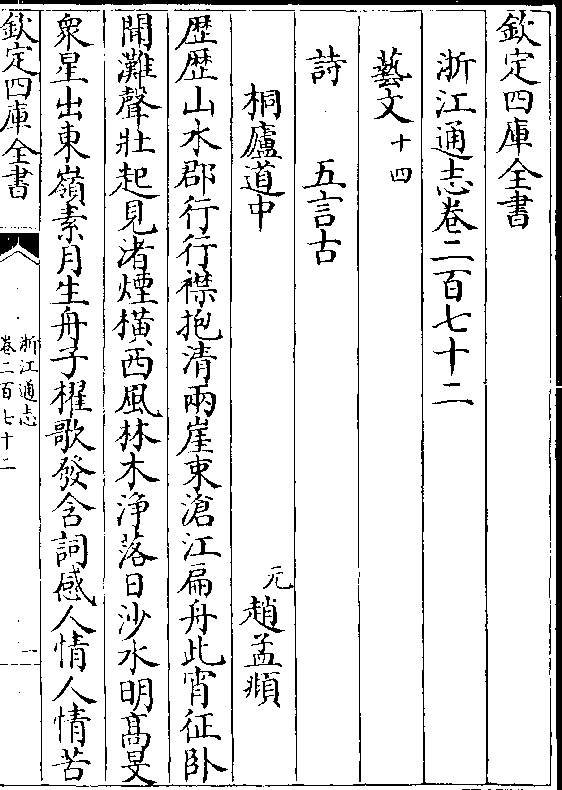 欽定四庫全書
浙江通志卷二百七十二
藝文十四
詩　五言古
桐廬道中　元趙孟頫
歴歴山水郡行行襟抱清兩崖束滄江扁舟此宵征卧
聞灘聲壮起見渚煙横西風林木浄落日沙水明髙旻
衆星出東嶺素月生舟子櫂歌發含詞感人情人情苦
欽定四庫全書
浙江通志
卷二百七十二
一